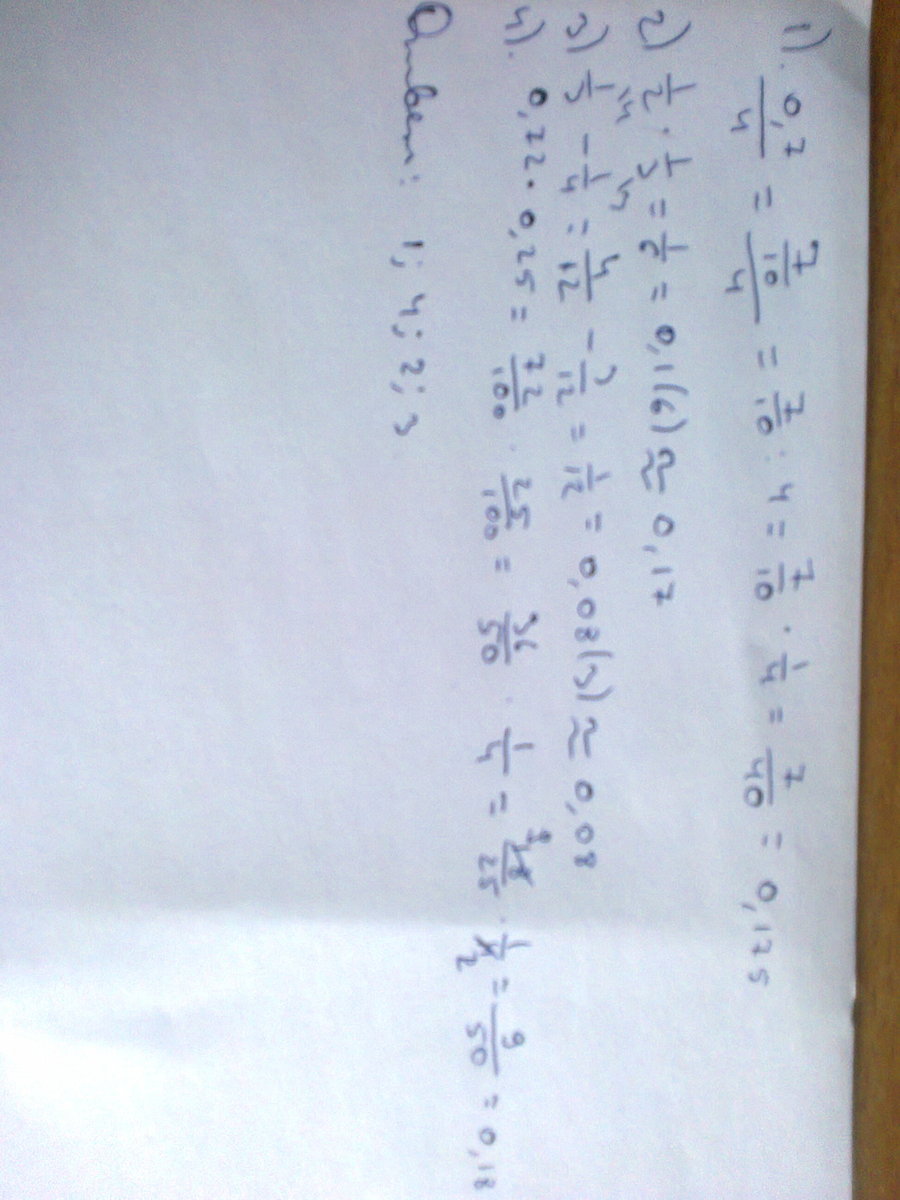 1). 0,7/4 = 7/10/4 = 7/10 : 4 = 7/10 · 1/4 = 7/40 = 0,175
2) 1/2 · 1/3 = 1/6 = 0,1(6) ≈ 0,17
3) 1/3 - 1/4 = 4/12 - 3/12 = 1/12 = 0,08(3) ≈ 0,08
4). 0,72 · 0,25 = 72/100 · 25/100 = 36/50 · 1/4 = 18/25 · 1/4 = 9/50 = 0,18
Ответ: 1; 4; 2; 3